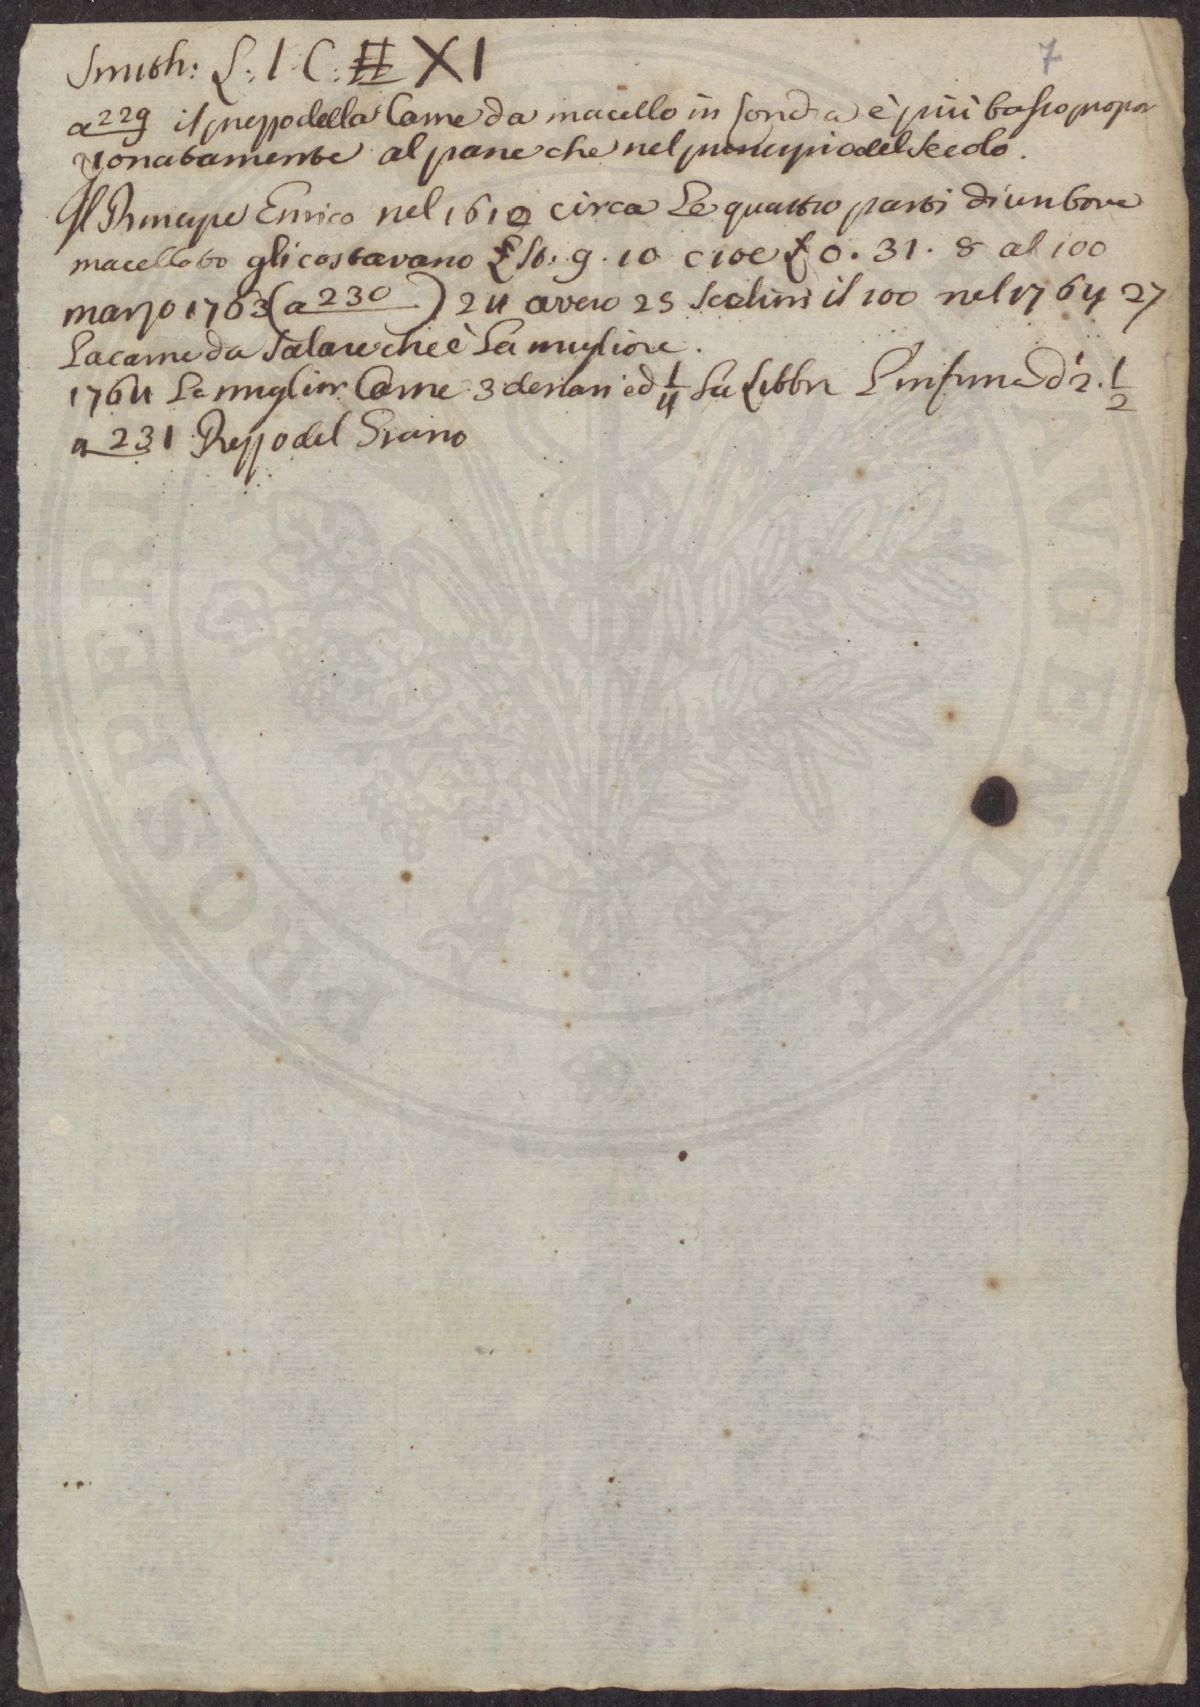 7
Smith: L: I C: II XI
a 229 il prezzo della Carne da macello in Londra è più basso propor
zionatamente al pane che nel principio del Secolo.
Il Principe Enrico nel 1612 circa Le quattro parti di un bove
macellato gli costavano £ St. 9. 10 cioe £ 0. 31. 8 al 100
marzo 1763 (a 230) 24 overo 25 Scelini il 100 nel 1764 27
La carne da Salare che è La migliore.
1764 La miglior Carne 3 denari ed 1/4 La Libbra L'infima d 2. 1/2
a 231 Prezzo del Grano
PROSPERITATI AVGENDAE